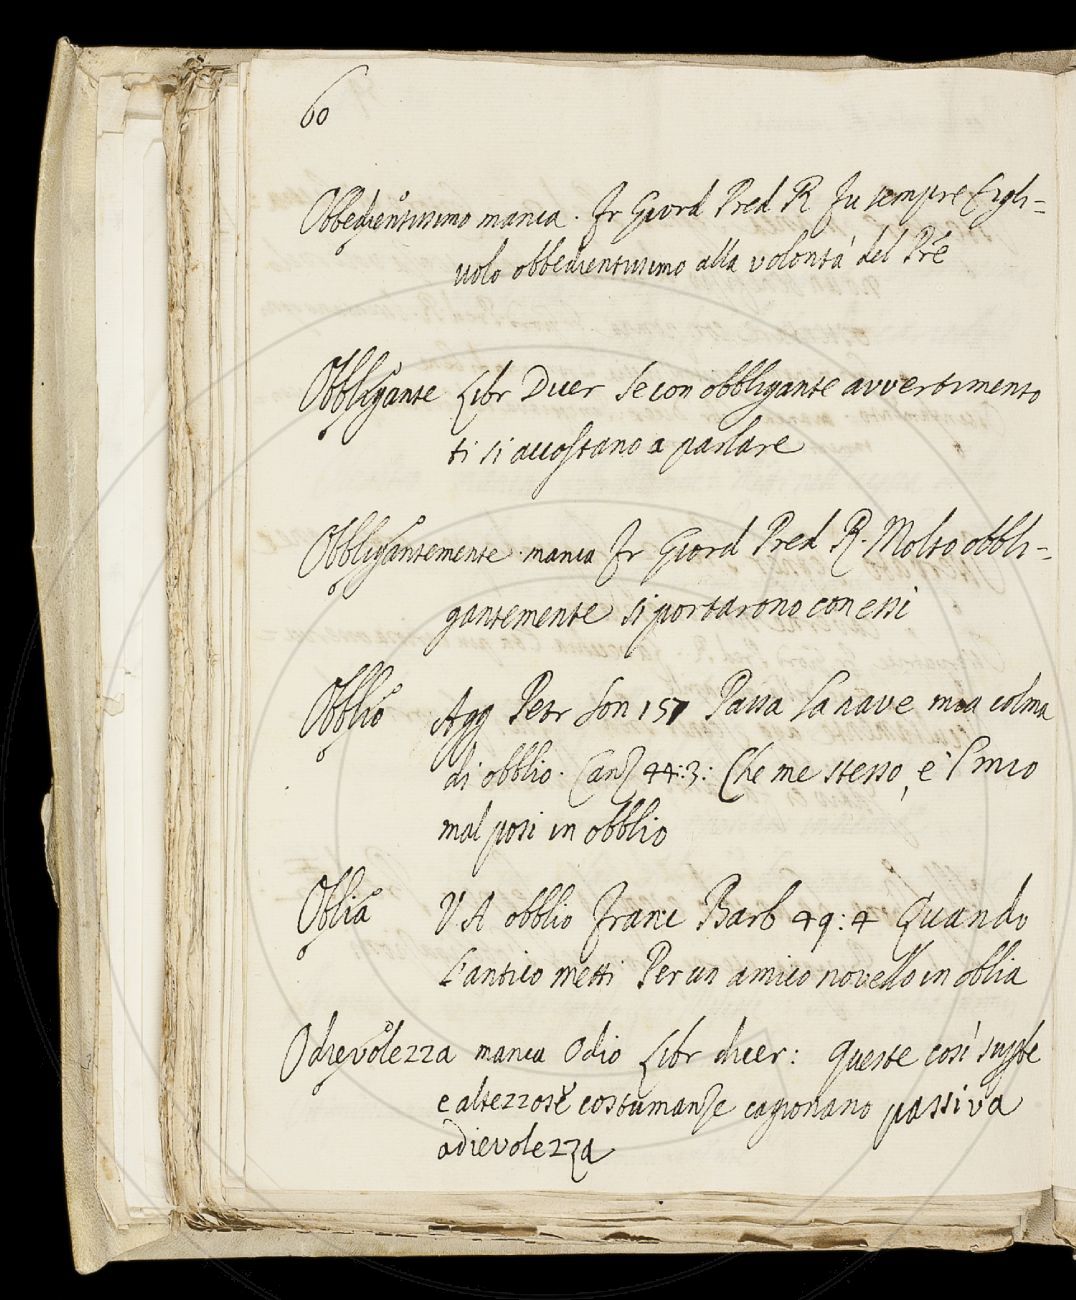 60
Obbedientissimo manca. Fr Giord Pred R Fu sempre figli=
uolo obbedientissimo alla volontà del Prē
Obbligante Libr Dicer Se con obbligante avvertimento
ti si accostano a parlare
Obbligantemente. manca Fr Giord Pred R. Molto obbli=
gantemente si portarono con essi
Obblio Agg Petr Son 157 Passa la nave mia colma
di obblio. Canz 44:3: Che me stesso, e 'l mio
mal posi in obblio
Oblia V A obblio Franc Barb 49:4 Quando
L'antico metti Per un amico novello in oblia
Odievolezza manca Odio Libr dicer: Queste così
e altezzose costumanze cagionano passiva
odievolezza